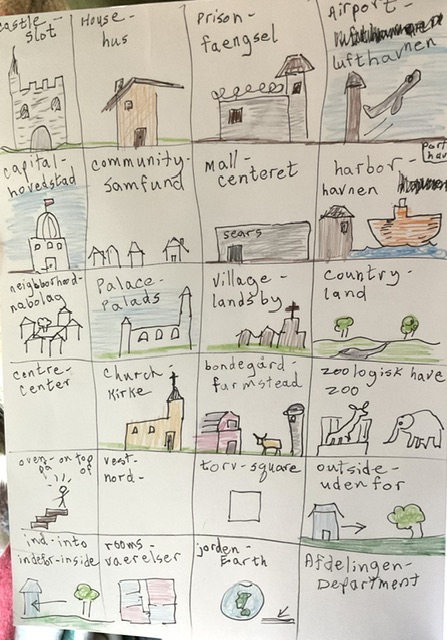 castle-
slot
House-
hus
Prison-
faengsel
Airport-
lufthavnen
capital-
hovedstad
community-
samfund
Mall-
centeret
sears
harbor-
havnen
neighborhood-
nabolag
Palace-
Palads
village-
landsby
country-
land
centre-
center
Church-
Kirke
bondegård-
farmstead
zoologisk have
zoo
oven-on top of
på
vest-
nord-
torv-square
outside-
udenfor
ind-into
indefor-inside
rooms-
vaerelser
jorden-
Earth
Afdelingen-
Department